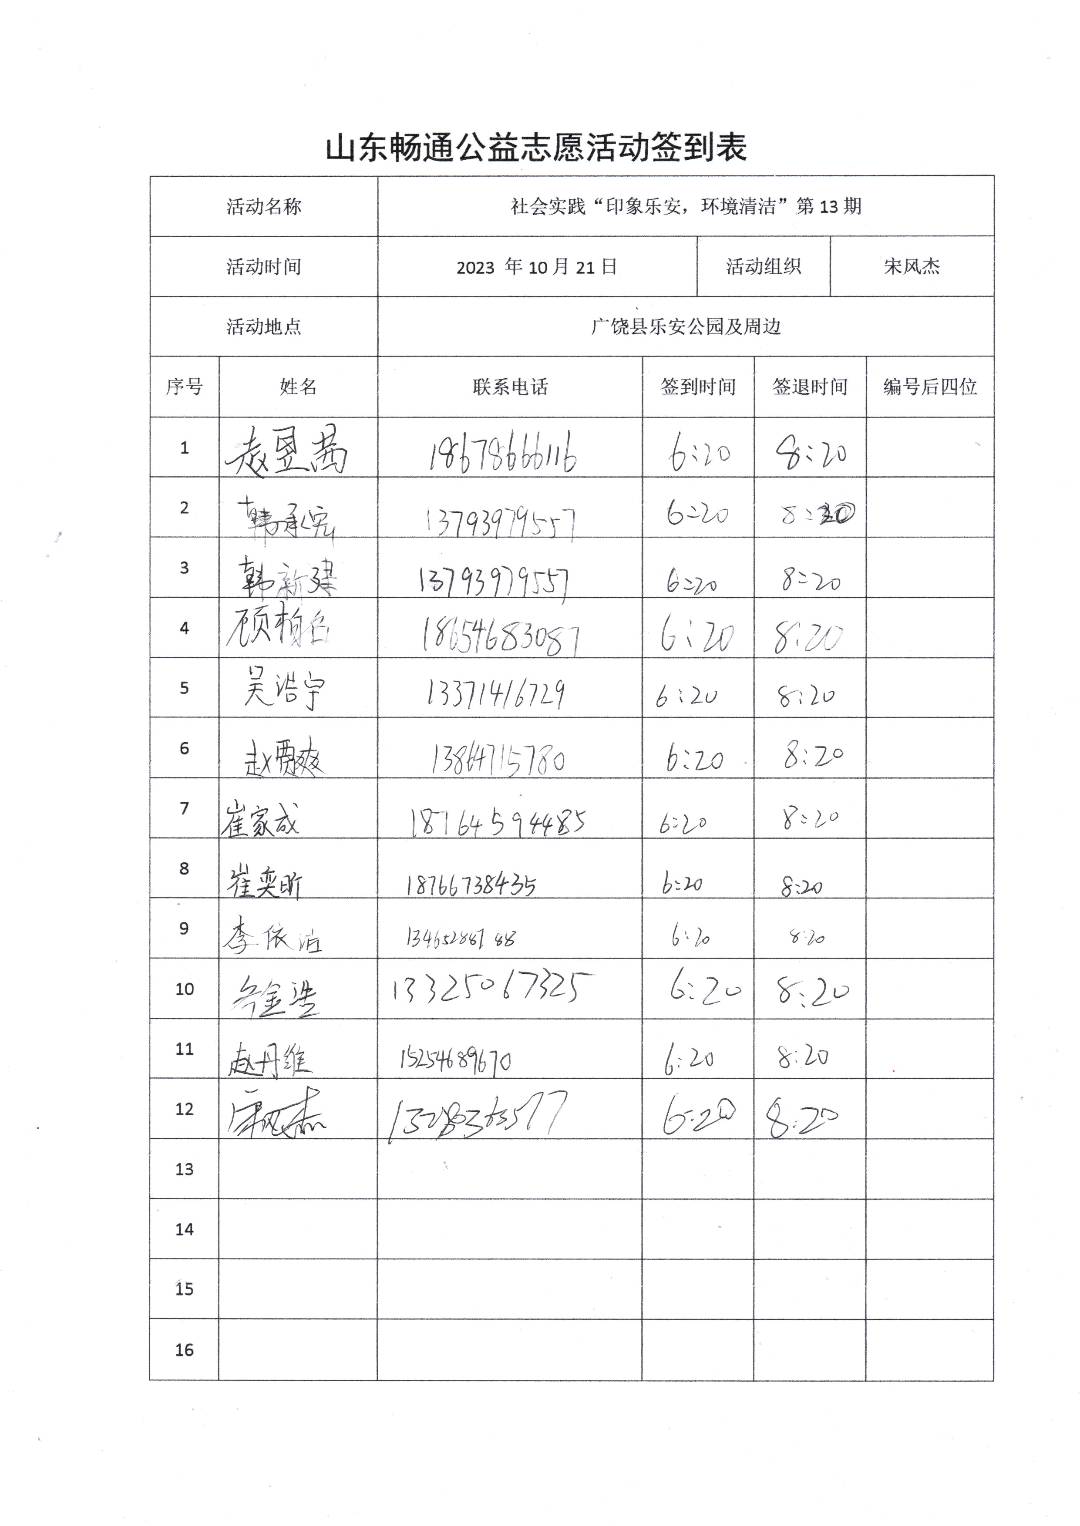 山东畅通公益志愿活动签到表
活动名称 社会实践“印象乐安，环境清洁”第 13 期
活动时间 2023 年 10 月 21 日 活动组织 宋风杰
活动地点 广饶县乐安公园及周边
序号 姓名 联系电话 签到时间 签退时间 编号后四位
1 赵昱茜 18678666116 6:20 8:20
2 韩承宪 13793979557 6:20 8:20
3 韩新建 13793979557 6:20 8:20
4 顾柏 18654683087 6:20 8:20
5 吴浩宇 13371416729 6:20 8:20
6 赵贾爽 13864715780 6:20 8:20
7 崔家成 18764594485 6:20 8:20
8 崔奕昕 18766738435 6:20 8:20
9 李依 13465288788 6:20 8:20
10 金浩 13325067325 6:20 8:20
11 赵丹维 15254689670 6:20 8:20
12 宋风杰 6:20 8:20
13
14
15
16